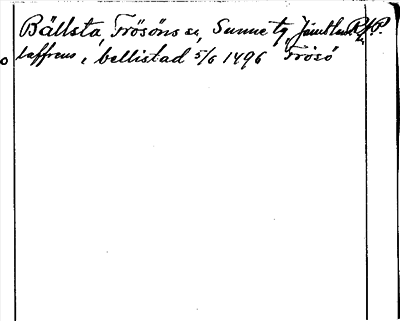 Bällsta, Frösöns sn, Sunne tg, Jämtland
laffrens, i bellistad 5/6 1496 Frösö